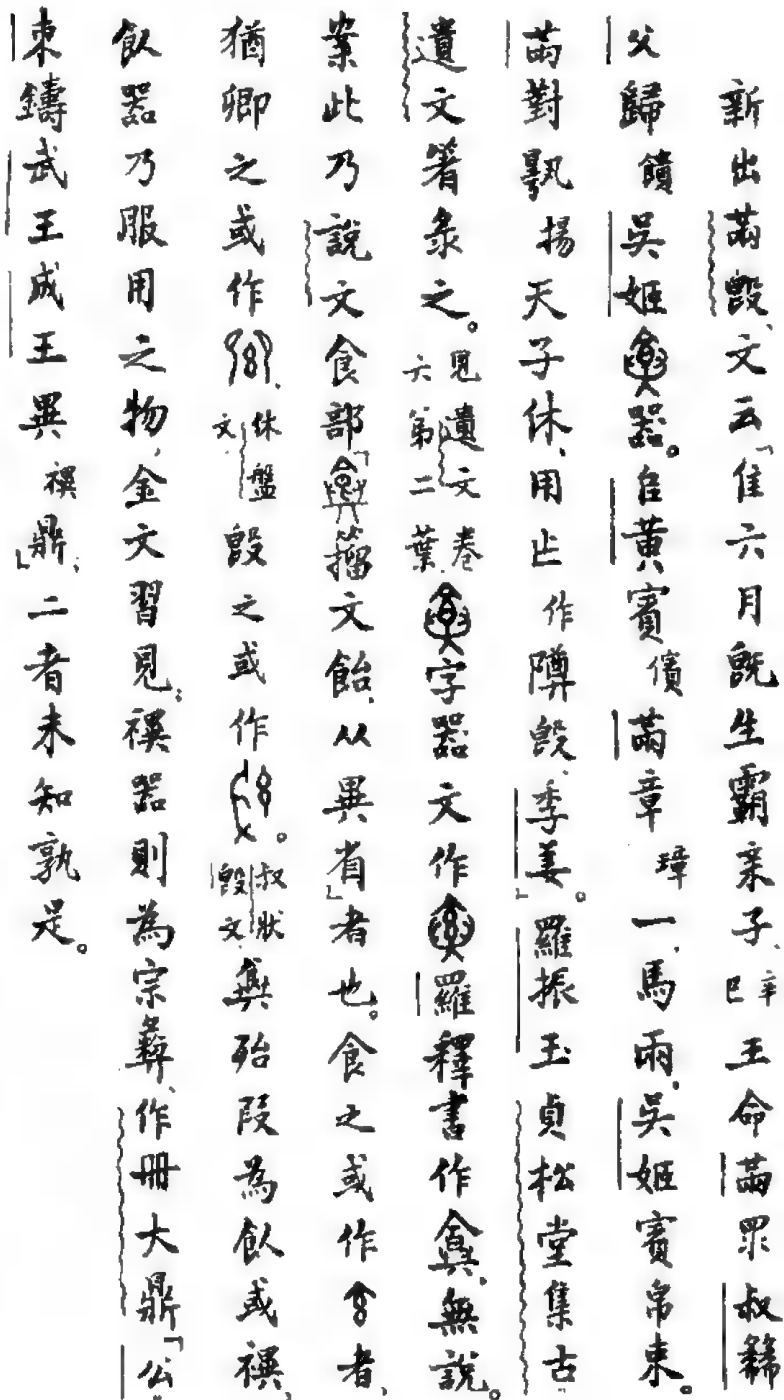 新出㒼𣪘、文云「隹六月旣生霸亲子、辛巳王命㒼眔叔
父歸饋吳姬器。𠂤黃賓儐㒼章璋一、馬兩、吳姬賓帛束。
㒼對揚天子休、用乍作𣪘、季姜」。羅振玉貞松堂集古
遺文箸彔之。見遺文卷六第二葉、字器文作羅釋書作、無說。
案此乃說文食部「籀文飴、从異省」者也。食之或作者、
猶卿之或作、休盤文、𣪘之或作。叔狀𣪘文、殆叚為飤或禩、
飤器乃服用之物、金文習見；禩器則為宗彝、作冊大鼎「公
朿鑄武王成王異禩鼎；」二者未知孰是。